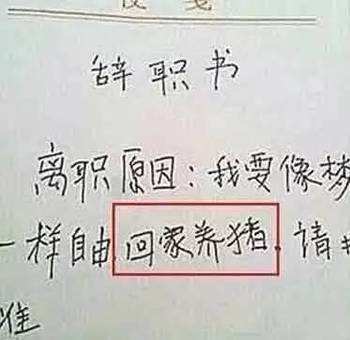 辞职书
离职原因:我要像梦
一样自由,回家养猪.请
准